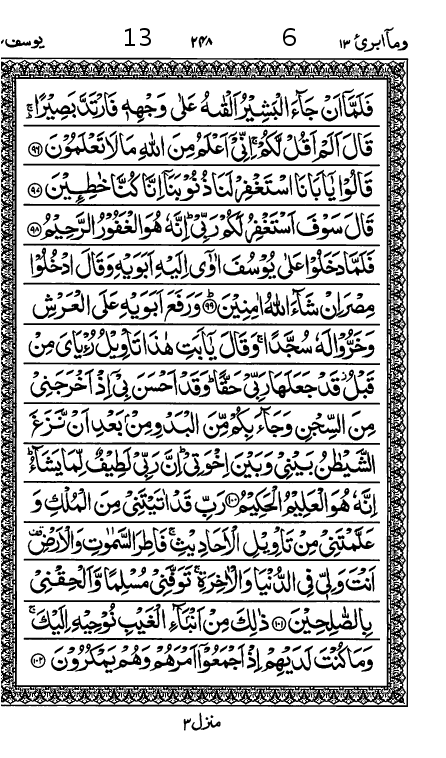 ومآابرئ ١٣ 6 ٢٤٨ 13 يوسف
فَلَمَّآ اَنْ جَآءَ الْبَشِيْرُ اَلْقٰىهُ عَلٰى وَجْهِهٖ فَارْتَدَّ بَصِيْرًا ۚ
قَالَ اَلَمْ اَقُلْ لَّكُمْ ۚ اِنِّيْٓ اَعْلَمُ مِنَ اللّٰهِ مَا لَا تَعْلَمُوْنَ ﴿۹۶﴾
قَالُوْا يٰٓاَبَانَا اسْتَغْفِرْ لَنَا ذُنُوْبَنَآ اِنَّا كُنَّا خٰطِـِٕيْنَ ﴿۹۷﴾
قَالَ سَوْفَ اَسْتَغْفِرُ لَكُمْ رَبِّيْ ؕ اِنَّهٗ هُوَ الْغَفُوْرُ الرَّحِيْمُ ﴿۹۸﴾
فَلَمَّا دَخَلُوْا عَلٰى يُوْسُفَ اٰوٰٓى اِلَيْهِ اَبَوَيْهِ وَقَالَ ادْخُلُوْا
مِصْرَ اِنْ شَآءَ اللّٰهُ اٰمِنِيْنَ ﴿۹۹﴾ وَرَفَعَ اَبَوَيْهِ عَلَى الْعَرْشِ
وَخَرُّوْا لَهٗ سُجَّدًا ۚ وَقَالَ يٰٓاَبَتِ هٰذَا تَاْوِيْلُ رُءْيَايَ مِنْ
قَبْلُ ؗ قَدْ جَعَلَهَا رَبِّيْ حَقًّا ؕ وَقَدْ اَحْسَنَ بِيْٓ اِذْ اَخْرَجَنِيْ
مِنَ السِّجْنِ وَجَآءَ بِكُمْ مِّنَ الْبَدْوِ مِنْۢ بَعْدِ اَنْ نَّزَغَ
الشَّيْطٰنُ بَيْنِيْ وَبَيْنَ اِخْوَتِيْ ؕ اِنَّ رَبِّيْ لَطِيْفٌ لِّمَا يَشَآءُ ؕ
اِنَّهٗ هُوَ الْعَلِيْمُ الْحَكِيْمُ ﴿۱۰۰﴾ رَبِّ قَدْ اٰتَيْتَنِيْ مِنَ الْمُلْكِ وَ
عَلَّمْتَنِيْ مِنْ تَاْوِيْلِ الْاَحَادِيْثِ ۚ فَاطِرَ السَّمٰوٰتِ وَالْاَرْضِ ۫
اَنْتَ وَلِيّٖ فِي الدُّنْيَا وَالْاٰخِرَةِ ۚ تَوَفَّنِيْ مُسْلِمًا وَّاَلْحِقْنِيْ
بِالصّٰلِحِيْنَ ﴿۱۰۱﴾ ذٰلِكَ مِنْ اَنْۢبَآءِ الْغَيْبِ نُوْحِيْهِ اِلَيْكَ ۚ
وَمَا كُنْتَ لَدَيْهِمْ اِذْ اَجْمَعُوْٓا اَمْرَهُمْ وَهُمْ يَمْكُرُوْنَ ﴿۱۰۲﴾
منزل ٣